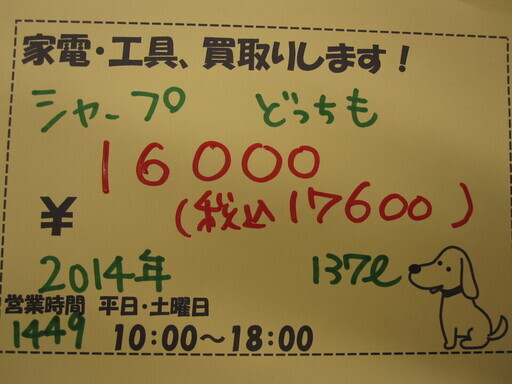 家電・工具、買取りします！
シャープ どっちも
16000
¥ (税込17600)
2014年 137ℓ
営業時間 平日・土曜日
1449 10:00～18:00